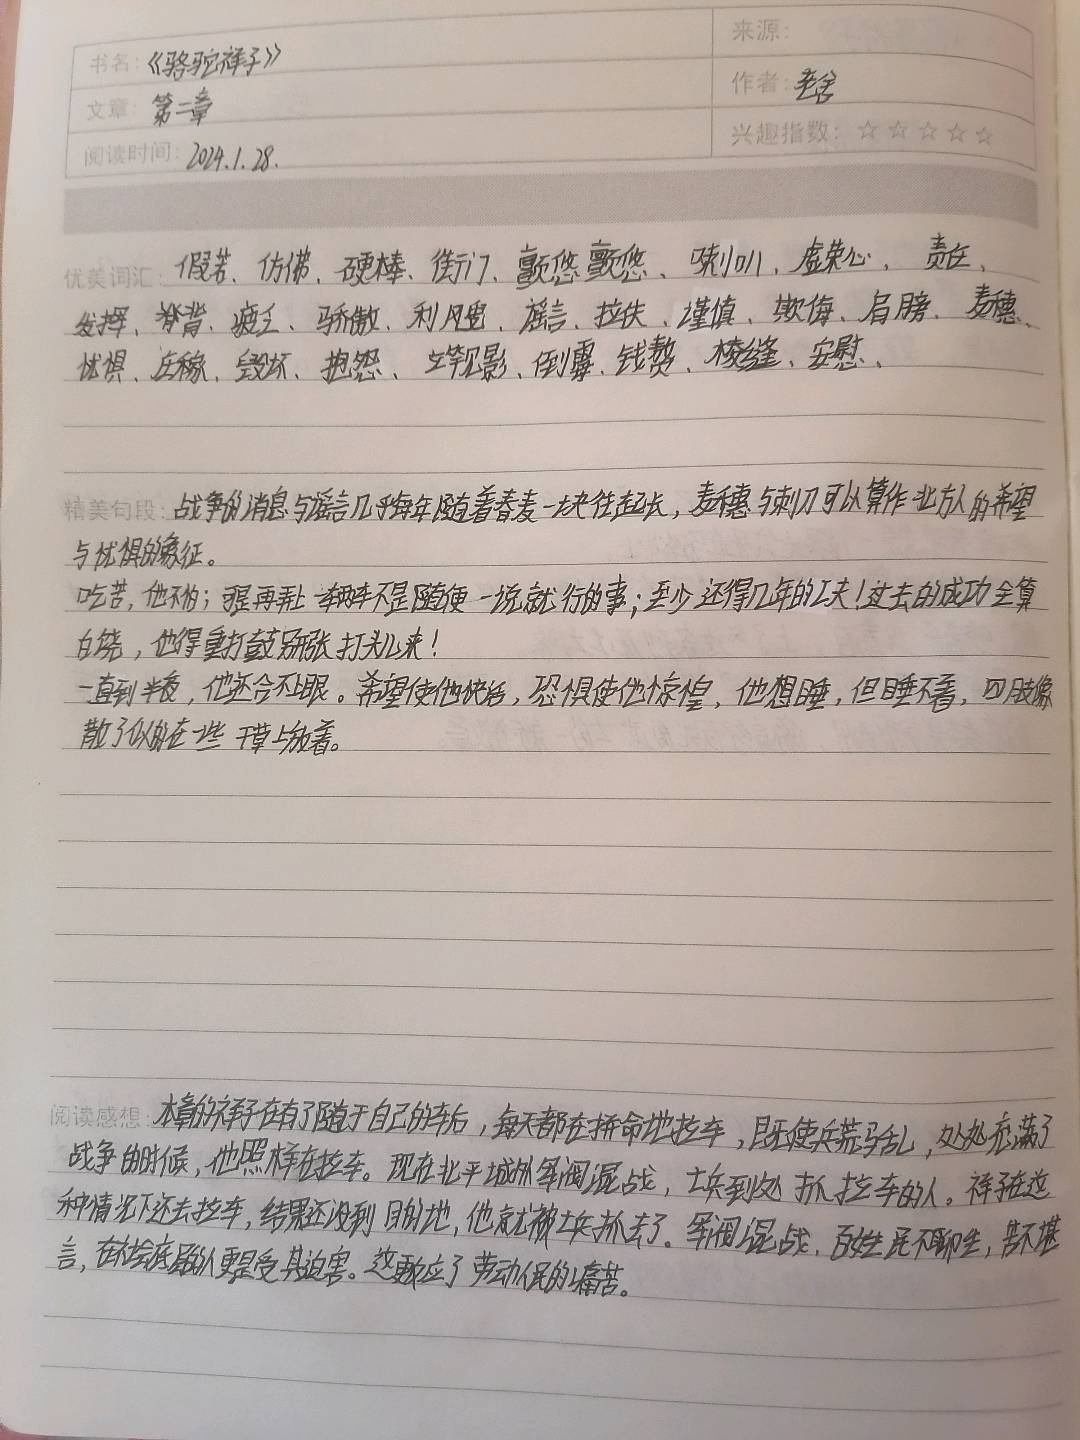 书名：《骆驼祥子》
来源：
文章：第二章
作者：老舍
阅读时间：2024.1.28.
兴趣指数：☆☆☆☆☆
优美词汇：假若、仿佛、硬棒、街门、颤悠颤悠、喇叭、虚荣心、责任、
发挥、脊背、疲乏、骄傲、利风鬼、谣言、拉伕、谨慎、欺侮、肩膀、麦穗、
忧惧、庄稼、毁坏、抱怨、立竿见影、倒霉、钱赘、棱缝、安慰、
精美句段：战争的消息与谣言几乎每年随着春麦一块往起长，麦穗与刺刀可以算作北方人的希望
与忧惧的象征。
吃苦，他不怕；可是再弄上一辆车不是随便一说就行的事；至少还得几年的工夫！过去的成功全算
白饶，他得重打鼓另开张打头儿来！
一直到半夜，他还合不上眼。希望使他快活，恐惧使他惊惶，他想睡，但睡不着，四肢像
散了似的在一些干草上放着。
阅读感想：本章的祥子在有了随于自己的车后，每天都在拼命地拉车，既使兵荒马乱，处处充满了
战争的时候，他照样在拉车。现在北平城外军阀混战，士兵到处抓拉车的人。祥子在这
种情况下还去拉车，结果还没到目的地，他就被士兵抓去了。军阀混战，百姓民不聊生，苦不堪
言，在社会底层的人更是受其迫害。这更反应了劳动人民的痛苦。